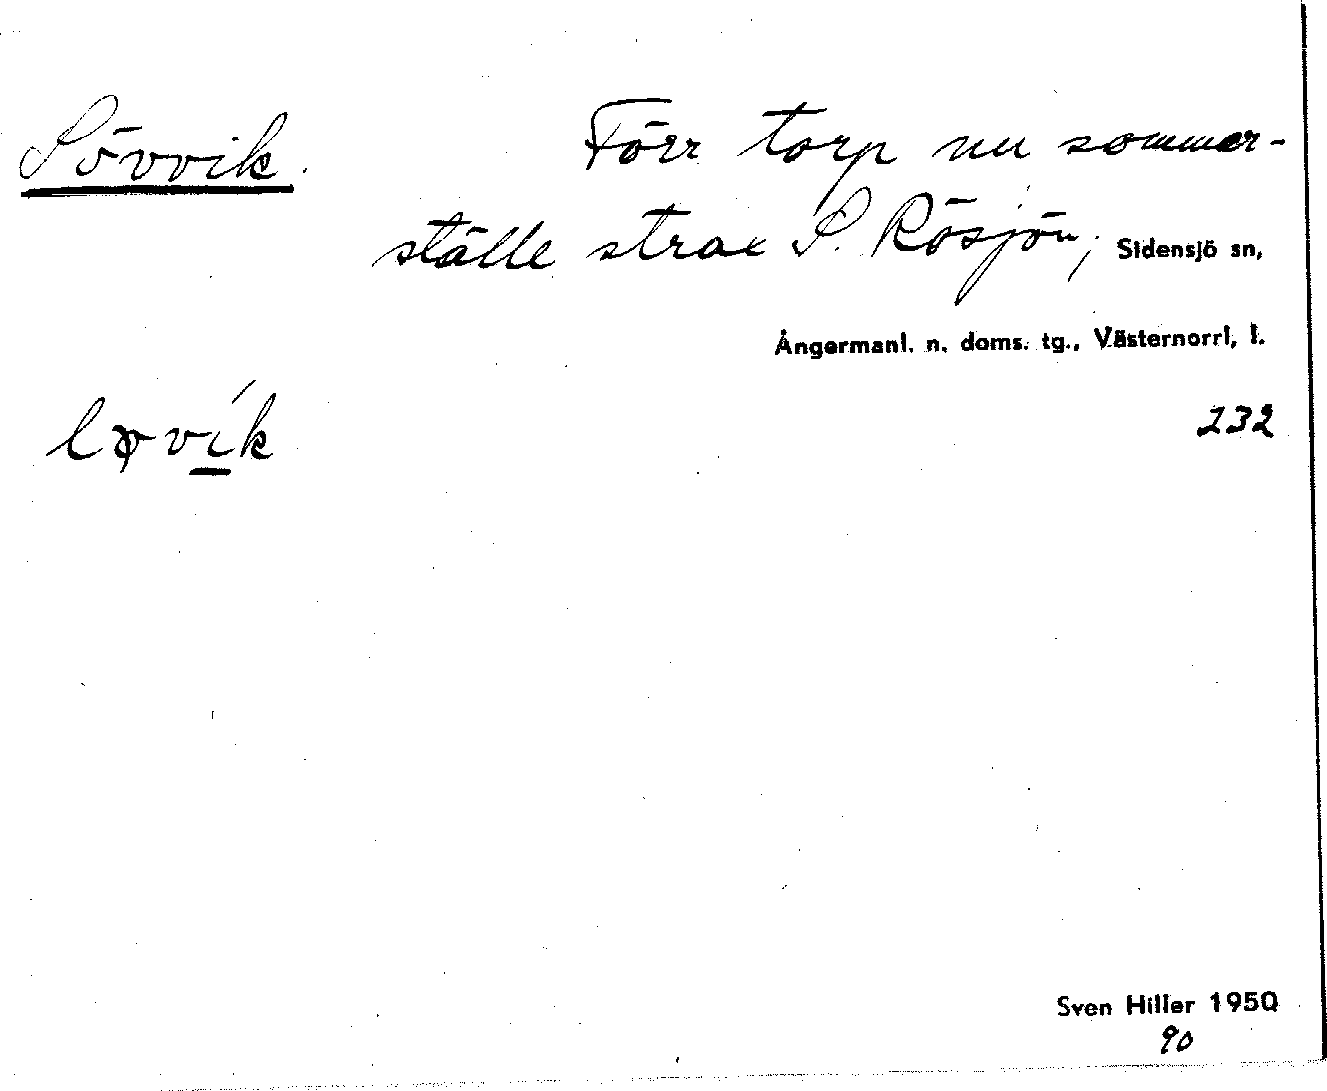 Lövvik. Förr torp nu sommar-
ställe strax S. Rösjön, Sidensjö sn,
Ångermanl. n. doms. tg., Västernorrl, l.
232
Sven Hiller 1950
90